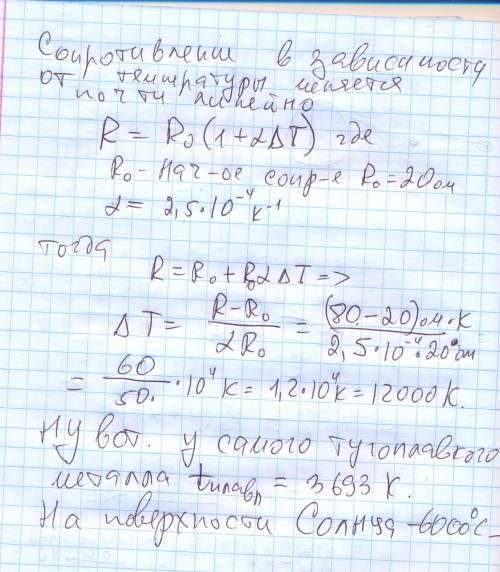 Сопротивление в зависимости
от температуры меняется
почти линейно
R = R₀(1+αΔT) где
R₀ - нач-ое сопр-е R₀ = 20 ом
α = 2,5·10⁻⁴ К⁻¹
тогда
R = R₀ + R₀αΔT =>
ΔT = (R-R₀)/(αR₀) = ((80-20) ом·К)/(2,5·10⁻⁴·20 ом)
= 60/50·10⁴ К = 1,2·10⁴ К = 12000 К.
Ну вот. у самого тугоплавкого
металла tплавл = 3693 К.
На поверхности Солнца -6000°С